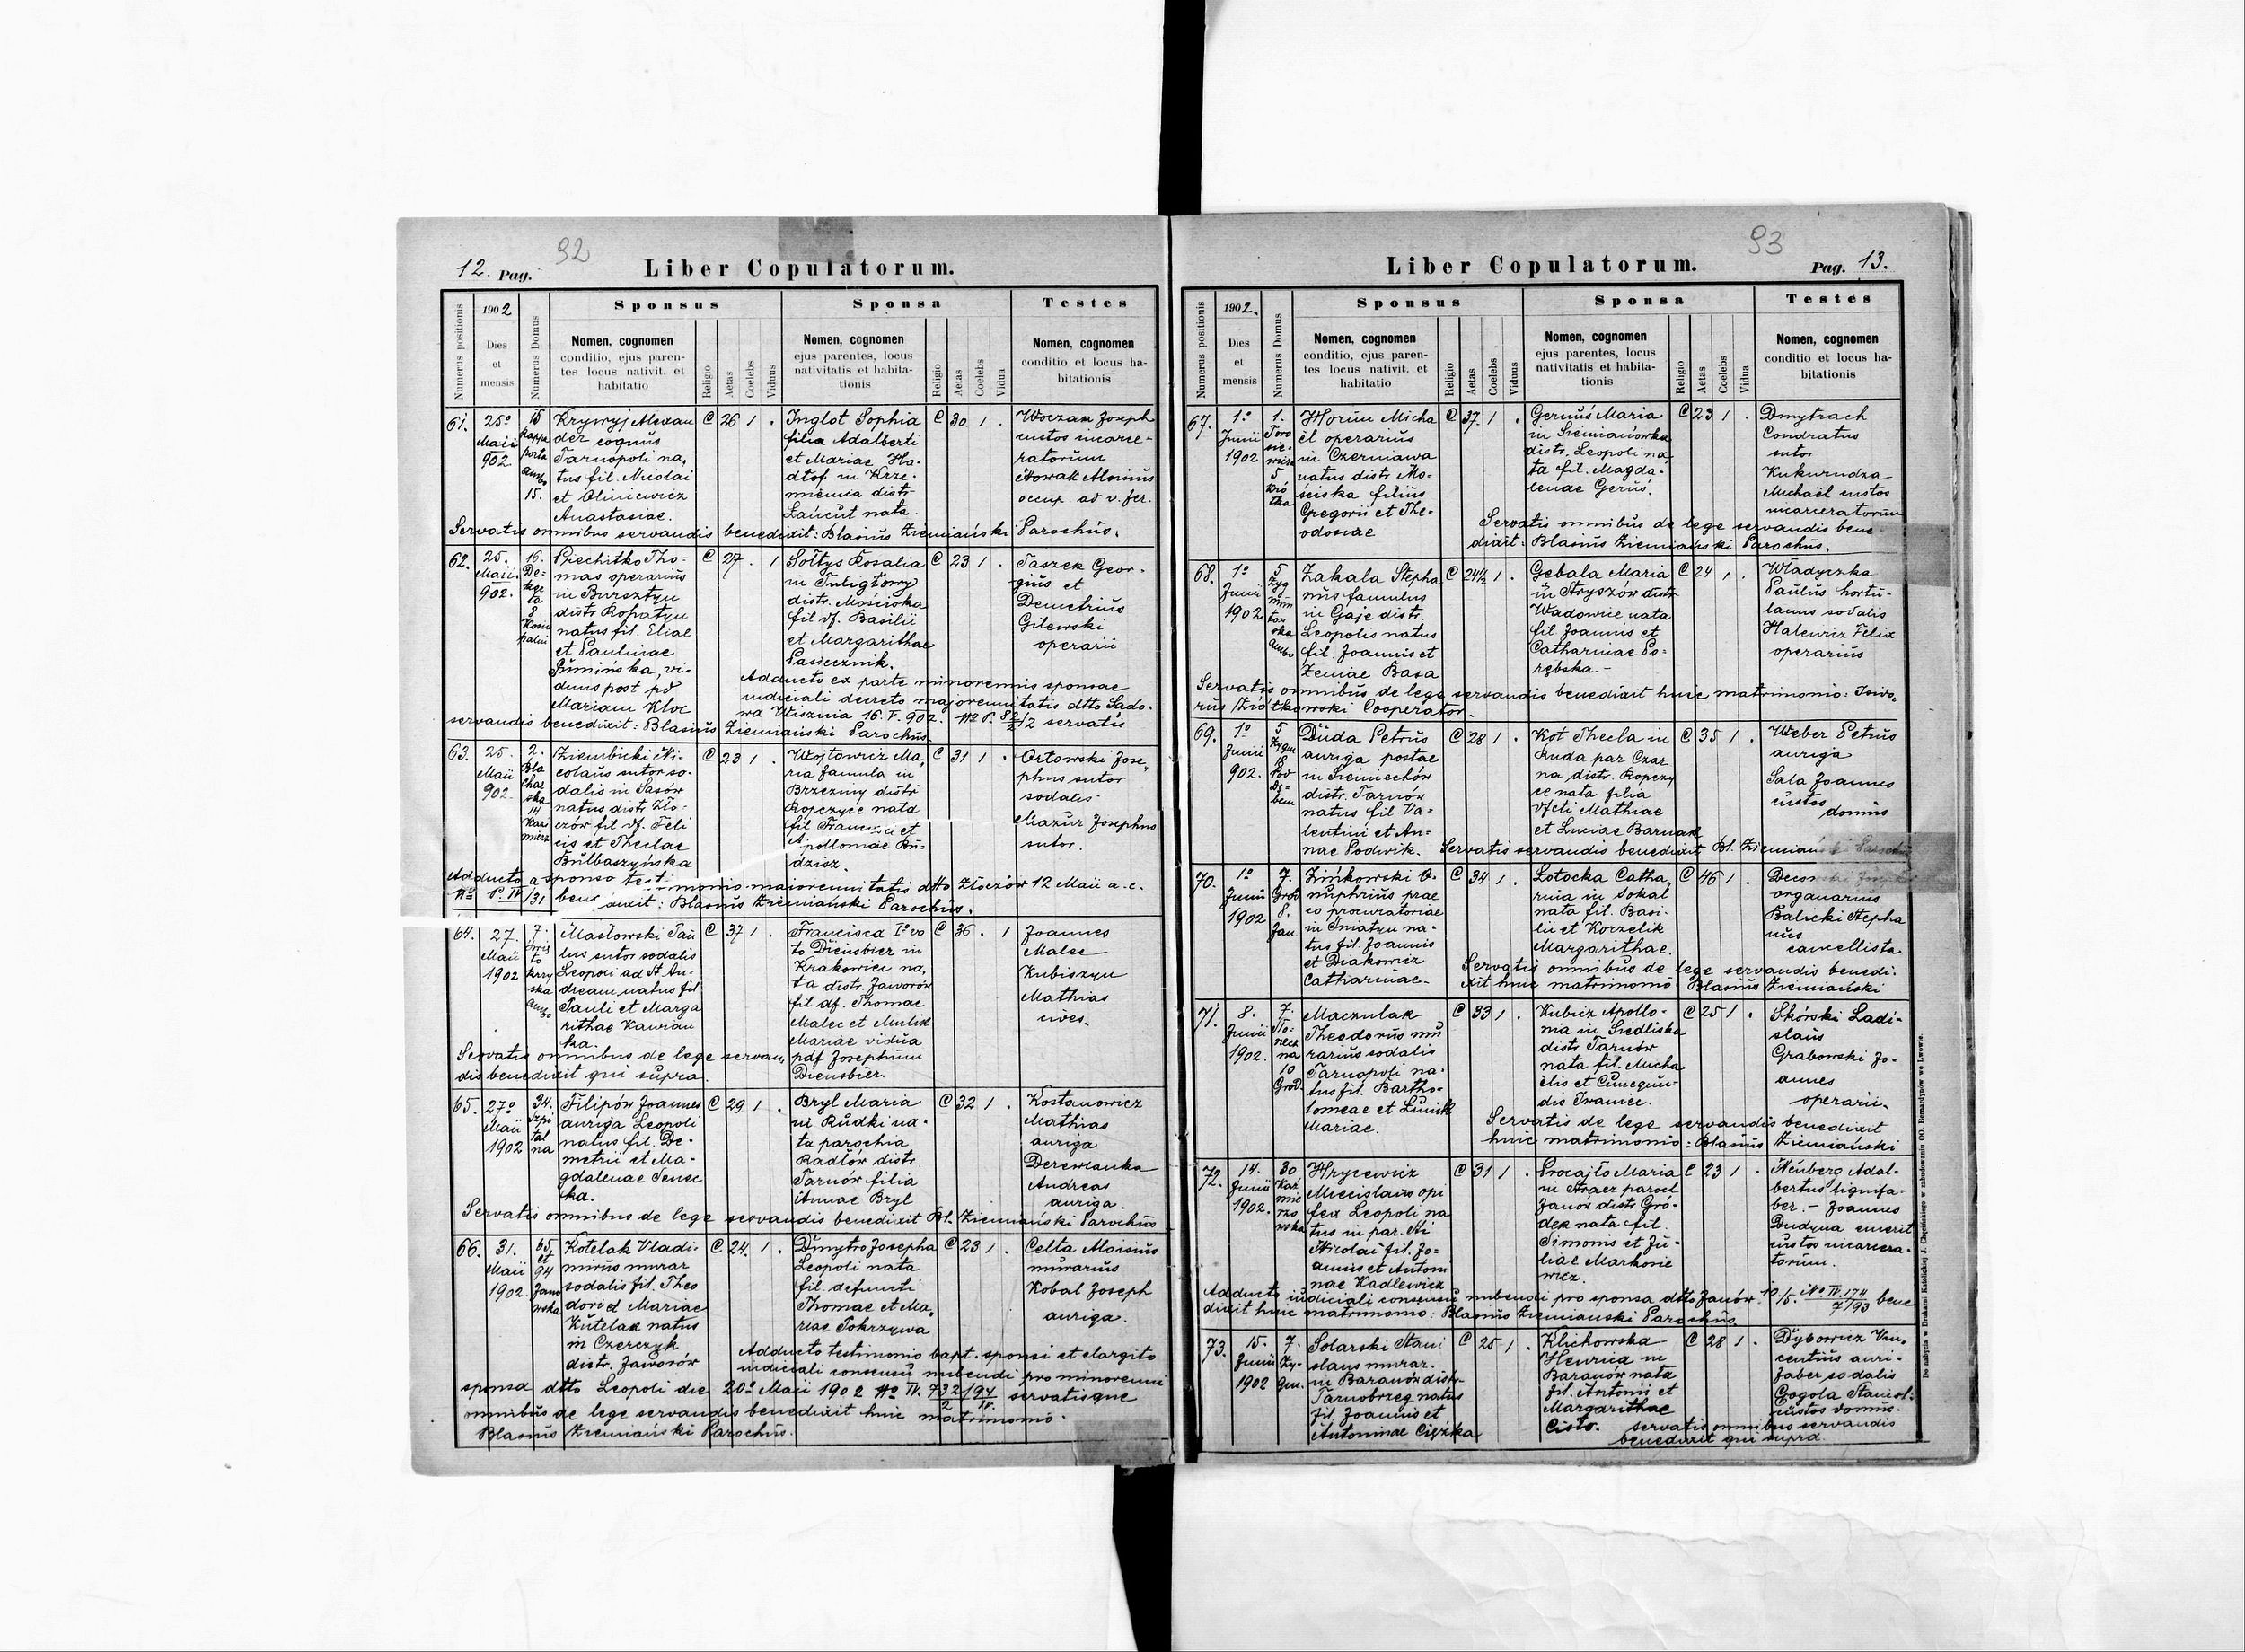 12. Pag.
92
Liber Copulatorum.
Numerus positionis
1902
Dies
et
mensis
Numerus Domus
Sponsus
Nomen, cognomen
conditio, ejus paren-
tes locus nativit. et
habitatio
Religio
Aetas
Coelebs
Viduus
Sponsa
Nomen, cognomen
ejus parentes, locus
nativitatis et habita-
tionis
Religio
Aetas
Coelebs
Vidua
Testes
Nomen, cognomen
conditio et locus ha-
bitationis
61.
25º
Maii
902.
15
porta
15.
Krywyj Alexan
der
Tarnopoli na,
tus fil. Nicolai
et Oliniewicz
Anastasiae.
C 26 1 .
Inglot Sophia
filia Adalberti
et Mariae Ha-
dtof in Krze-
mienica distr.
Łańcut nata.
C 30 1 .
Woczan Joseph
custos incarce-
ratorum
Nowak Aloisius
occup. ad v. fer.
Servatis omnibus servandis benedixit: Blasius Ziemiański Parochus.
62.
25.
Maii
902.
16.
8
Piechitko Tho-
mas operarius
in Bursztyn
distr. Rohatyn
natus fil. Eliae
et Paulinae
vi-
duus post pd
Mariam Kloc
C 27 . 1
Sołtys Rosalia
in Tuligłowy
distr. Mościska
fil df. Basilii
et Margarithae
Pasiecznik.
C 23 1 .
Taszek Geor-
gius et
Demetrius
Gilewski
operarii
Adducto ex parte minorennis sponsae
iudiciali decreto majorennitatis dtto Sądo-
wa Wisznia 16. V. 902. servatis
servandis benedixit: Blasius Ziemiański Parochus.
63.
25.
Maii
902.
2.
Bla
char
ska
14
Kazi
mierz
Ziembicki Ni-
colaus sutor so-
dalis in Sasów
natus distr. Zło-
czów fil df. Feli
cis et Theclae
Bulbaszyńska
C 23 1 .
Wojtowicz Ma,
ria famula in
Brzeziny distr
Ropczyce nata
fil Francisci et
Apolloniae Bu-
dzisz.
C 31 1 .
Ortowski Jose,
phus sutor
sodalis
Mazur Josephus
sutor.
Adducto a sponso testimonio maiorennitatis dtto Złoczów 12 Maii a. c.
benedixit: Blasius Ziemiański Parochus.
64.
27.
Maii
1902
7.
Masłowski Pau
lus sutor sodalis
Leopoli ad St. An-
dream natus fil
Pauli et Marga
rithae Kawian
ka.
C 37 1 .
Francisca Iº vo
to Diensbier in
Krakowiec na,
ta distr. Jaworów
fil df. Thomae
Malec et Mulik
Mariae vidua
pdf Josephum
Diensbier.
C 36 . 1
Joannes
Malec
Kubiszyn
Mathias
cives.
Servatis omnibus de lege servan,
dis benedixit qui supra.
65.
27º
Maii
1902
34.
Szpi
tal
na
Filipów Joannes
auriga Leopoli
natus fil. De-
metrii et Ma-
gdalenae Senec
ka.
C 29 1 .
Bryl Maria
in Rudki na-
ta parochia
Radłów distr.
Tarnów filia
Annae Bryl
C 32 1 .
Kostanowicz
Mathias
auriga
Derewlanka
Andreas
auriga.
Servatis omnibus de lege servandis benedixit Bl. Ziemiański Parochus
66.
31.
Maii
1902
65
et
94
Jano
wska
Kotelak Vladi-
mirus murar
sodalis fil. Theo
dori et Mariae
Kutelak natus
in Czerczyk
distr. Jaworów
C 24. 1 .
Dmytro Josepha
Leopoli nata
fil. defuncti
Thomae et Ma,
riae Pokrzywa
C 23 1 .
Celta Aloisius
murarius
Kobal Joseph
auriga.
Adducto testimonio bapt. sponsi et elargito
iudiciali consensu nubendi pro minorenni
sponsa dtto Leopoli die 20º Maii 1902 servatisque
omnibus de lege servandis benedixit huic matrimonio.
Blasius Ziemiański Parochus.
93
Liber Copulatorum.
Pag. 13.
Numerus positionis
1902.
Dies
et
mensis
Numerus Domus
Sponsus
Nomen, cognomen
conditio, ejus paren-
tes locus nativit. et
habitatio
Religio
Aetas
Coelebs
Viduus
Sponsa
Nomen, cognomen
ejus parentes, locus
nativitatis et habita-
tionis
Religio
Aetas
Coelebs
Vidua
Testes
Nomen, cognomen
conditio et locus ha-
bitationis
67.
1º
Junii
1902
1.
5
Horim Micha
ël operarius
in Czerniawa
natus distr. Mo-
ściska filius
Gregorii et The-
odosiae
C 37. 1 .
Geruś Maria
in Siemianówka
distr. Leopoli na
ta fil. Magda-
lenae Geruś.
C 23 1 .
Dmytrach
Condratus
sutor
Kukurudza
Michaël custos
incarceratorum
Servatis omnibus de lege servandis bene-
dixit: Blasius Ziemiański Parochus.
68.
1º
Junii
1902
5
Zyg
mun
tow
ska
ambo
Zakala Stepha
nus famulus
in Gaje distr.
Leopolis natus
fil. Joannis et
Xeniae Basa
C 24½ 1 .
Gebala Maria
in Stryszów distr.
Wadowice nata
fil Joannis et
Catharinae Po-
rębska.-
C 24 1 .
Wladyczka
Paulus hortu-
lanus sodalis
Halewicz Felix
operarius
Servatis omnibus de lege servandis benedixit huic matrimonio: Isido,
rus Ziótkowski Cooperator.
69.
1º
Junii
902.
5
Zygm
18
Duda Petrus
auriga postae
in Siemiechów
distr. Tarnów
natus fil. Va-
lentini et An-
nae Podwik.
C 28 1 .
Kot Thecla in
Ruda par Czar
na, distr. Ropczy
ce nata filia
dfcti Mathiae
et Luciae Barnak
C 35 1 .
Weber Petrus
auriga
Sala Joannes
custos
domus
Servatis servandis benedixit Bl. Ziemiański Parochus
70.
1º
Junii
1902
7.
Grod
8.
Jan.
Zinkowski O-
nuphrius prae
co procuratoriae
in Śniatyn na-
tus fil. Joannis
et Diakowicz
Catharinae.
C 34 1 .
Łotocka Catha,
rina in Sokal
nata fil. Basi-
lii et Korzelik
Margarithae.
C 46 1 .
organarius
Balicki Stepha
nus
cancellista
Servatis omnibus de lege servandis benedi-
xit huic matrimonio Blasius Ziemiański
71.
8.
Junii
1902.
7.
10
Grod.
Maczulak
Theodorus mu
rarius sodalis
Tarnopoli na-
tus fil. Bartho-
lomeae et Lunik
Mariae.
C 33 1 .
Kubicz Apollo-
nia in Siedliska
distr Tarnów
nata fil. Micha
ëlis et Cunegun-
dis Iraniec.
C 25 1 .
Skórski Ladi-
slaus
Grabowski Jo-
annes
operarii.
Servatis de lege servandis benedixit
huic matrimonio: Blasius Ziemiański
72.
14.
Junii
1902.
30
Kaź
mie
rzo
wska
Hrycewicz
Miecislaus opi
fex Leopoli na
tus in par. Sti
Nicolai fil. Jo-
annis et Antoni
nae Kadlewicz
C 31 1 .
Procajło Maria
in Stracz paroch
Janów distr Gró-
dek nata fil.
Simonis et Ju-
liae Markorie
wicz.
C 23 1 .
Neuberg Adal-
bertus lignifa-
ber.- Joannes
Dudyna emerit
custos incarcera-
torum.
Adducto iudiciali consensu nubendi pro sponsa dtto Janów 10./5. Nº IV. 174/7/93 bene
dixit huic matrimonio: Blasius Ziemiański Parochus.
73.
15.
Junii
1902
7.
Zy-
gm.
Solarski Stani
slaus murar.
in Baranów distr.
Tarnobrzeg natus
fil Joannis et
Antoninae Ciężka
C 25 1 .
Klichowska
Henrica in
Baranów nata
fil. Antonii et
Margarithae
Cisto.
C 28 1 .
Dybowicz Vin-
centius auri-
faber sodalis
Gogola Stanisl.
custos domus.
servatis omnibus servandis
benedixit qui supra.
Do nabycia w Drukarni Katolickiej J. Chęcińskiego w zabudowaniu OO. Bernardynów we Lwowie.